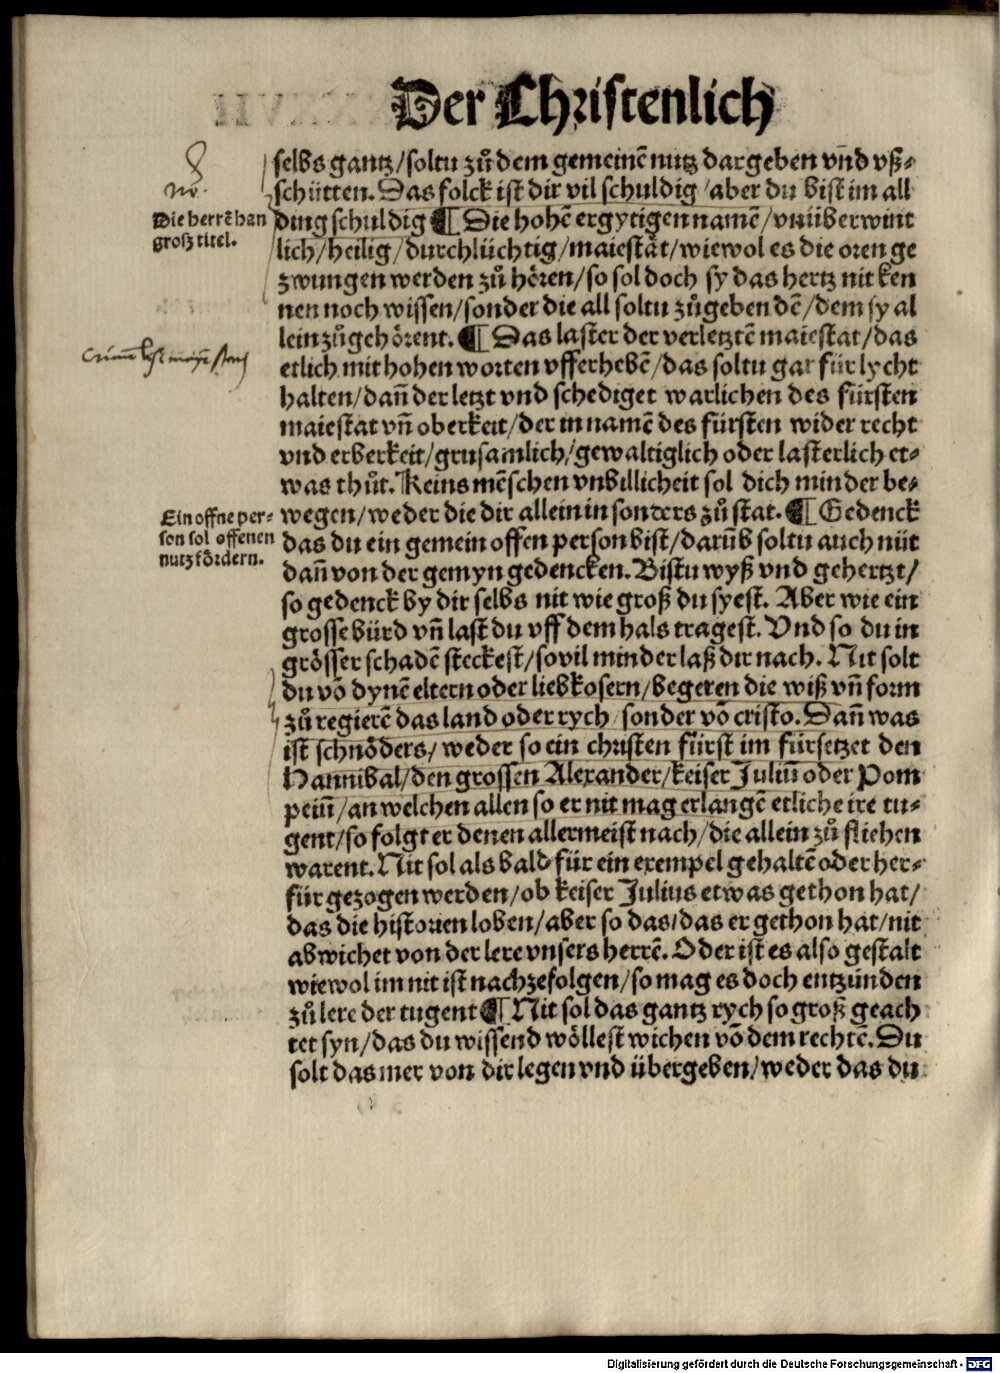 Der Christenlich
selbs gantz/soltu zů dem gemeinē nutz dargeben vn̄d vß-
schütten. Das folck ist dir vil schuldig/aber du bist im all
Die herrē han
groß titel.
ding schuldig ¶ Die hohē ergytigen namē/vnüberwint
lich/heilig/durchlüchtig/maiestät/wiewol es die oren ge
zwungen werden zů hören/so sol doch sy das hertz nit ken
nen noch wissen/sonder die all soltu zůgeben dē/dem sy al
lein zůgehörent. ¶ Das laster der verletztē maiestat/das
etlich mit hohen worten vfferhebē/das soltu gar für lycht
halten/dan̄ der letzt vnd schediget warlichen des fürsten
maiestat vn̄ oberkeit/der in namē des fürsten wider recht
vnd erberkeit/grusamlich/gewaltiglich oder lasterlich et-
was thůt. Keins mēschen vnbillicheit sol dich minder be-
Ein offne per-
son sol offenen
nutz fördern.
wegen/weder die dir allein in sonders zů stat. ¶ Gedenck
das du ein gemein offen person bist/darūb soltu auch nüt
dan̄ von der gemyn gedencken. Bistu wyß vnd gehertzt/
so gedenck by dir selbs nit wie groß du syest. Aber wie ein
grosse bürd vn̄ last du vff dem hals tragest. Vnd so du in
grösser schadē steckest/so vil minder laß dir nach. Nit solt
du vō dynē eltern oder liebkosern/begeren die wiß vn̄ form
zů regierē das land oder rych/sonder vō cristo. Dan̄ was
ist schnöders/weder so ein christen fürst im fürsetzet den
Hannibal/den grossen Alexander/keiser Juliū oder Pom
peiū/an welchen allen so er nit mag erlangē etliche ire tu-
gent/so folgt er denen allermeist nach/die allein zů fliehen
warent. Nit sol als bald für ein exempel gehaltē oder her-
für gezogen werden/ob keiser Julius etwas gethon hat/
das die historien loben/aber so das/das er gethon hat/nit
abwichet von der lere vnsers herrē. Oder ist es also gestalt
wiewol im nit ist nachzefolgen/so mag es doch entzünden
zů lere der tugent ¶ Nit sol das gantz rych so groß geach
tet syn/das du wissend wöllest wichen vō dem rechtē. Du
solt das mer von dir legen vnd übergeben/weder das du
Digitalisierung gefördert durch die Deutsche Forschungsgemeinschaft - DFG